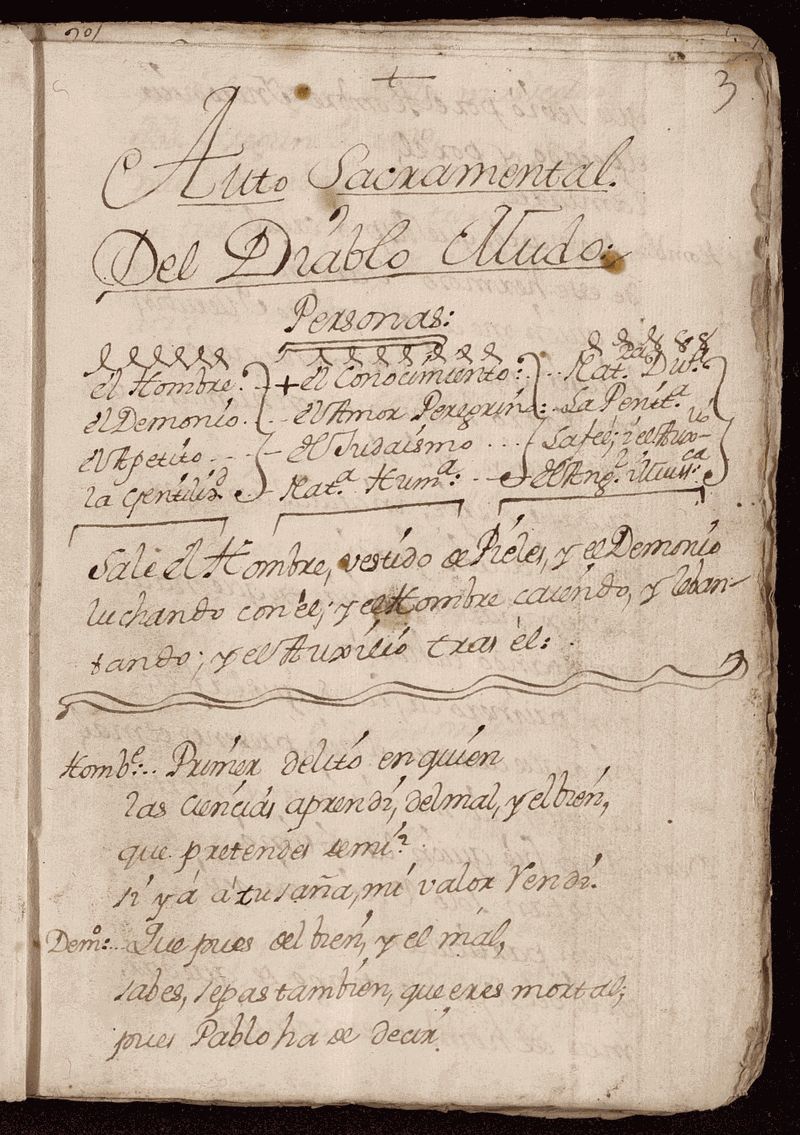 3
Auto Sacramental.
Del Diablo Mudo:
Personas:
el Hombre. + el Conocimiento: Nat.ª Div.ª
el Demonio. el Amor Peregrino: La Penit.ª
el Apetito - el Judaismo La fee; i el Aux-
la Gentilid. Nat.ª Hum.ª
Sale el Hombre, vestido de Pieles, y el Demonio
luchando con el; y el Hombre caiendo, y leban-
tando; y el Auxilio tras èl:
Homb.e: Primer delito en quien
las ciencias aprendi, del mal, y el bien,
que pretendes de mi?
si yá á tu saña, mi valor Vendi.
Dem.o: Que pues del bien, y el mal,
sabes, sepas tambien, que eres mortal;
pues Pablo ha de decir